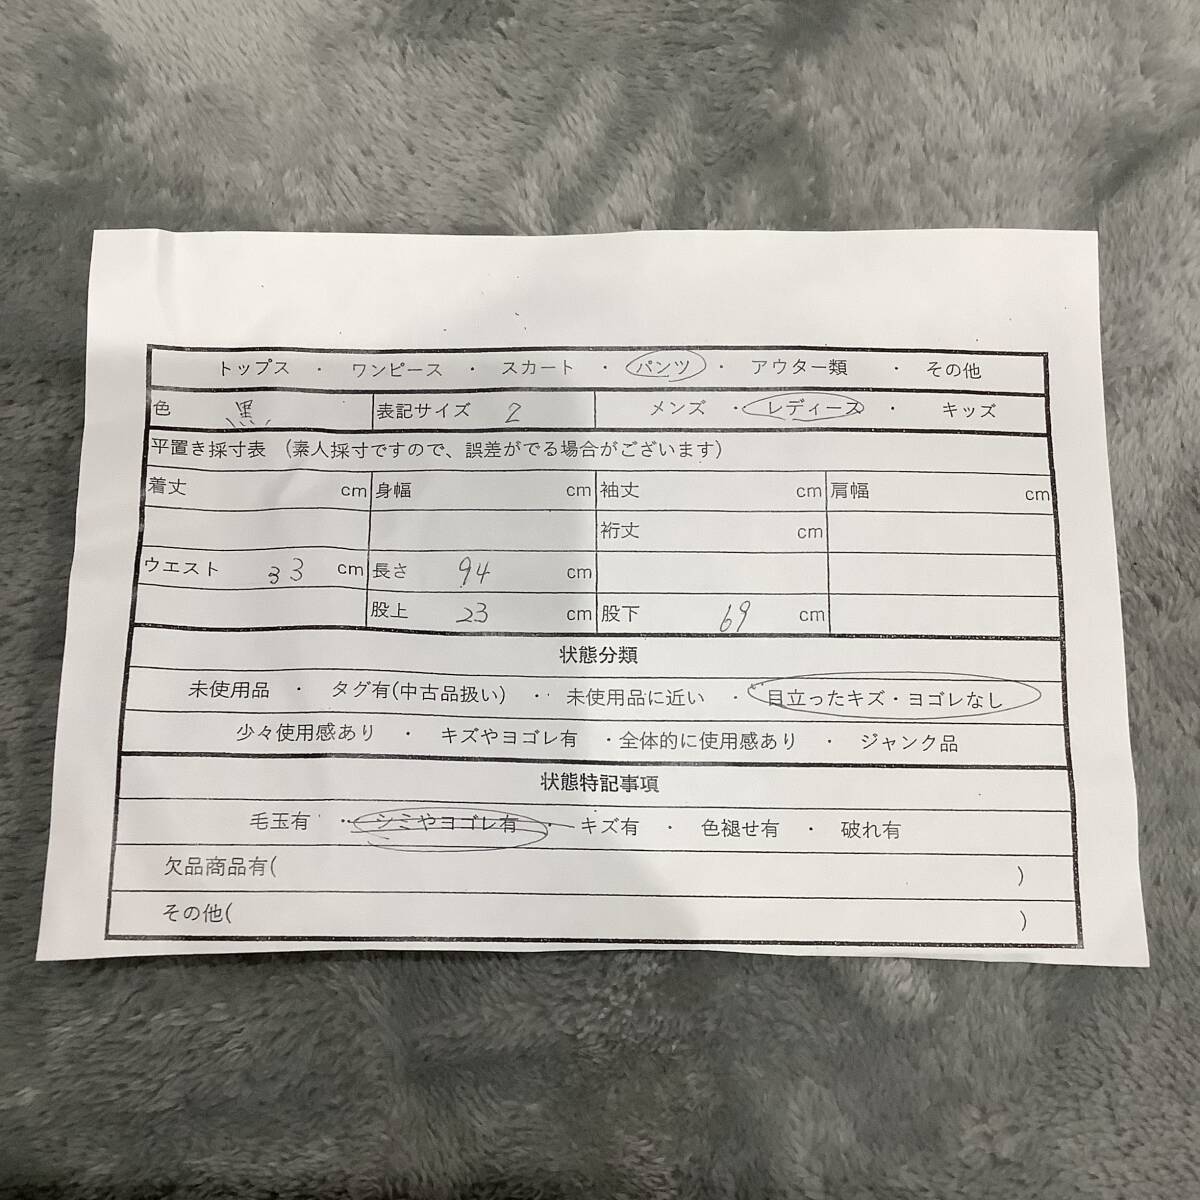 トップス ・ ワンピース ・ スカート ・ パンツ ・ アウター類 ・ その他
色 黒 表記サイズ 2 メンズ ・ レディース ・ キッズ
平置き採寸表 (素人採寸ですので、誤差がでる場合がございます)
着丈 cm 身幅 cm 袖丈 cm 肩幅 cm
裄丈 cm
ウエスト 33 cm 長さ 94 cm
股上 23 cm 股下 69 cm
状態分類
未使用品 ・ タグ有(中古品扱い) ・ 未使用品に近い ・ 目立ったキズ・ヨゴレなし
少々使用感あり ・ キズやヨゴレ有 ・全体的に使用感あり ・ ジャンク品
状態特記事項
毛玉有 ・ シミやヨゴレ有 ・ キズ有 ・ 色褪せ有 ・ 破れ有
欠品商品有( )
その他( )